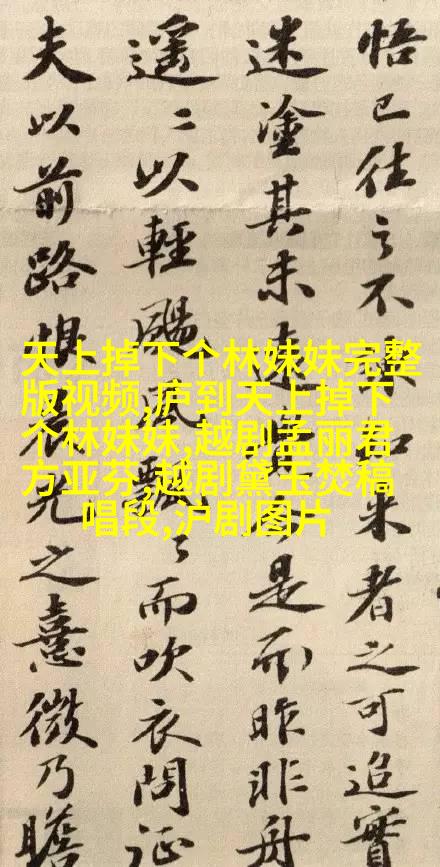 悟已往之不知来者之可追實
迷塗其未遠覺今是而昨非舟
遥〻以輕颺風飄〻而吹衣問征
夫以前路恨晨光之熹微乃瞻
天上掉下个林妹妹完整
版视频,庐到天上掉下
个林妹妹,越剧孟丽君
方亚芬,越剧黛玉焚稿
唱段,沪剧图片